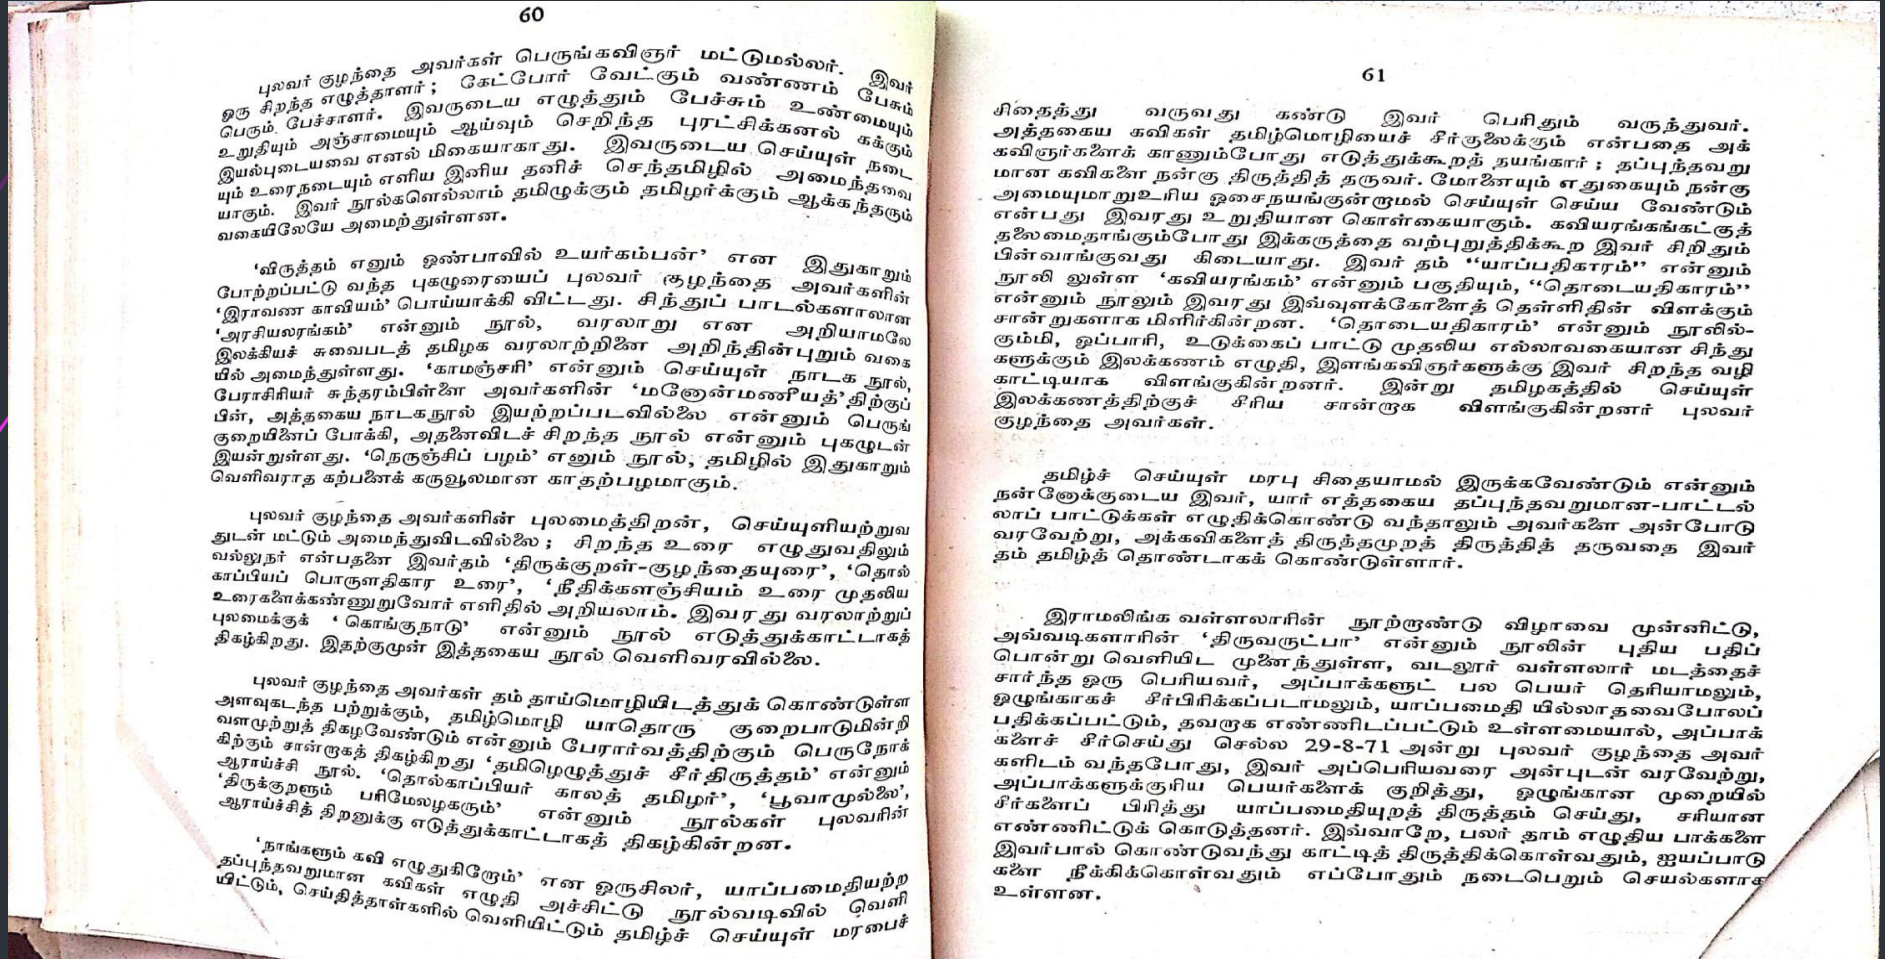 60
புலவர் குழந்தை அவர்கள் பெருங்கவிஞர் மட்டுமல்லர். இவர்
ஒரு சிறந்த எழுத்தாளர் ; கேட்போர் வேட்கும் வண்ணம் பேசும்
பெரும் பேச்சாளர். இவருடைய எழுத்தும் பேச்சும் உண்மையும்
உறுதியும் அஞ்சாமையும் ஆய்வும் செறிந்த புரட்சிக்கனல் கக்கும்
இயல்புடையவை எனல் மிகையாகாது. இவருடைய செய்யுள் நடை
யும் உரைநடையும் எளிய இனிய தனிச் செந்தமிழில் அமைந்தவை
யாகும். இவர் நூல்களெல்லாம் தமிழுக்கும் தமிழர்க்கும் ஆக்கந்தரும்
வகையிலேயே அமைற்துள்ளன.
‘விருத்தம் எனும் ஒண்பாவில் உயர்கம்பன்’ என இதுகாறும்
போற்றப்பட்டு வந்த புகழுரையைப் புலவர் குழந்தை அவர்களின்
‘இராவண காவியம்’ பொய்யாக்கி விட்டது. சிந்துப் பாடல்களாலான
‘அரசியலரங்கம்’ என்னும் நூல், வரலாறு என அறியாமலே
இலக்கியச் சுவைபடத் தமிழக வரலாற்றினை அறிந்தின்புறும் வகை
யில் அமைந்துள்ளது. ‘காமஞ்சரி’ என்னும் செய்யுள் நாடக நூல்,
பேராசிரியர் சுந்தரம்பிள்ளை அவர்களின் ‘மனோன்மணீயத்’திற்குப்
பின், அத்தகைய நாடகநூல் இயற்றப்படவில்லை என்னும் பெருங்
குறையினைப் போக்கி, அதனைவிடச் சிறந்த நூல் என்னும் புகழுடன்
இயன்றுள்ளது. ‘நெருஞ்சிப் பழம்’ எனும் நூல், தமிழில் இதுகாறும்
வெளிவராத கற்பனைக் கருவூலமான காதற்பழமாகும்.
புலவர் குழந்தை அவர்களின் புலமைத்திறன், செய்யுளியற்றுவ
துடன் மட்டும் அமைந்துவிடவில்லை ; சிறந்த உரை எழுதுவதிலும்
வல்லுநர் என்பதனை இவர்தம் ‘திருக்குறள்-குழந்தையுரை’, ‘தொல்
காப்பியப் பொருளதிகார உரை’, ‘நீதிக்களஞ்சியம் உரை முதலிய
உரைகளைக்கண்ணுறுவோர் எளிதில் அறியலாம். இவரது வரலாற்றுப்
புலமைக்குக் ‘ கொங்குநாடு’ என்னும் நூல் எடுத்துக்காட்டாகத்
திகழ்கிறது. இதற்குமுன் இத்தகைய நூல் வெளிவரவில்லை.
புலவர் குழந்தை அவர்கள் தம் தாய்மொழியிடத்துக் கொண்டுள்ள
அளவுகடந்த பற்றுக்கும், தமிழ்மொழி யாதொரு குறைபாடுமின்றி
வளமுற்றுத் திகழவேண்டும் என்னும் பேரார்வத்திற்கும் பெருநோக்
கிற்கும் சான்றாகத் திகழ்கிறது ‘தமிழெழுத்துச் சீர்திருத்தம்’ என்னும்
ஆராய்ச்சி நூல். ‘தொல்காப்பியர் காலத் தமிழர்’, ‘பூவாமுல்லை’,
‘திருக்குறளும் பரிமேலழகரும்’ என்னும் நூல்கள் புலவரின்
ஆராய்ச்சித் திறனுக்கு எடுத்துக்காட்டாகத் திகழ்கின்றன.
‘நாங்களும் கவி எழுதுகிறோம்’ என ஒருசிலர், யாப்பமைதியற்ற
தப்புந்தவறுமான கவிகள் எழுதி அச்சிட்டு நூல்வடிவில் வெளி
யிட்டும், செய்தித்தாள்களில் வெளியிட்டும் தமிழ்ச் செய்யுள் மரபைச்
61
சிதைத்து வருவது கண்டு இவர் பெரிதும் வருந்துவர்.
அத்தகைய கவிகள் தமிழ்மொழியைச் சீர்குலைக்கும் என்பதை அக்
கவிஞர்களைக் காணும்போது எடுத்துக்கூறத் தயங்கார் ; தப்புந்தவறு
மான கவிகளை நன்கு திருத்தித் தருவர். மோனையும் எதுகையும் நன்கு
அமையுமாறுஉரிய ஓசைநயங்குன்றாமல் செய்யுள் செய்ய வேண்டும்
என்பது இவரது உறுதியான கொள்கையாகும். கவியரங்கங்கட்குத்
தலைமைதாங்கும்போது இக்கருத்தை வற்புறுத்திக்கூற இவர் சிறிதும்
பின்வாங்குவது கிடையாது. இவர் தம் “யாப்பதிகாரம்” என்னும்
நூலி லுள்ள ‘கவியரங்கம்’ என்னும் பகுதியும், “தொடையதிகாரம்”
என்னும் நூலும் இவரது இவ்வுளக்கோளைத் தெள்ளிதின் விளக்கும்
சான்றுகளாக மிளிர்கின்றன. ‘தொடையதிகாரம்’ என்னும் நூலில்-
கும்மி, ஒப்பாரி, உடுக்கைப் பாட்டு முதலிய எல்லாவகையான சிந்து
களுக்கும் இலக்கணம் எழுதி, இளங்கவிஞர்களுக்கு இவர் சிறந்த வழி
காட்டியாக விளங்குகின்றனர். இன்று தமிழகத்தில் செய்யுள்
இலக்கணத்திற்குச் சீரிய சான்றாக விளங்குகின்றனர் புலவர்
குழந்தை அவர்கள்.
தமிழ்ச் செய்யுள் மரபு சிதையாமல் இருக்கவேண்டும் என்னும்
நன்னோக்குடைய இவர், யார் எத்தகைய தப்புந்தவறுமான-பாட்டல்
லாப் பாட்டுக்கள் எழுதிக்கொண்டு வந்தாலும் அவர்களை அன்போடு
வரவேற்று, அக்கவிகளைத் திருத்தமுறத் திருத்தித் தருவதை இவர்
தம் தமிழ்த் தொண்டாகக் கொண்டுள்ளார்.
இராமலிங்க வள்ளலாரின் நூற்றாண்டு விழாவை முன்னிட்டு,
அவ்வடிகளாரின் ‘திருவருட்பா’ என்னும் நூலின் புதிய பதிப்
பொன்று வெளியிட முனைந்துள்ள, வடலூர் வள்ளலார் மடத்தைச்
சார்ந்த ஒரு பெரியவர், அப்பாக்களுட் பல பெயர் தெரியாமலும்,
ஒழுங்காகச் சீர்பிரிக்கப்படாமலும், யாப்பமைதி யில்லாதவைபோலப்
பதிக்கப்பட்டும், தவறாக எண்ணிடப்பட்டும் உள்ளமையால், அப்பாக்
களைச் சீர்செய்து செல்ல 29-8-71 அன்று புலவர் குழந்தை அவர்
களிடம் வந்தபோது, இவர் அப்பெரியவரை அன்புடன் வரவேற்று,
அப்பாக்களுக்குரிய பெயர்களைக் குறித்து, ஒழுங்கான முறையில்
சீர்களைப் பிரித்து யாப்பமைதியுறத் திருத்தம் செய்து, சரியான
எண்ணிட்டுக் கொடுத்தனர். இவ்வாறே, பலர் தாம் எழுதிய பாக்களை
இவர்பால் கொண்டுவந்து காட்டித் திருத்திக்கொள்வதும், ஐயப்பாடு
களை நீக்கிக்கொள்வதும் எப்போதும் நடைபெறும் செயல்களாக
உள்ளன.